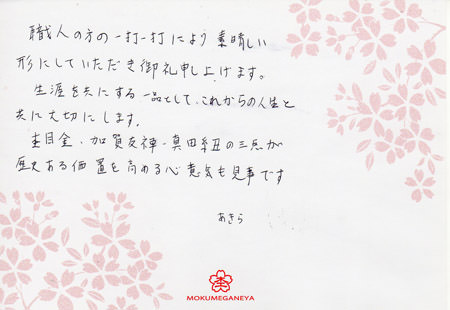 職人の方の一打一打により素晴しい
形にしていただき御礼申し上げます。
生涯を共にする一品として、これからの人生と
共に大切にします。
杢目金・加賀友禅・真田紐の三点が
歴史ある価置を高める心意気も見事です
あきら
MOKUMEGANEYA